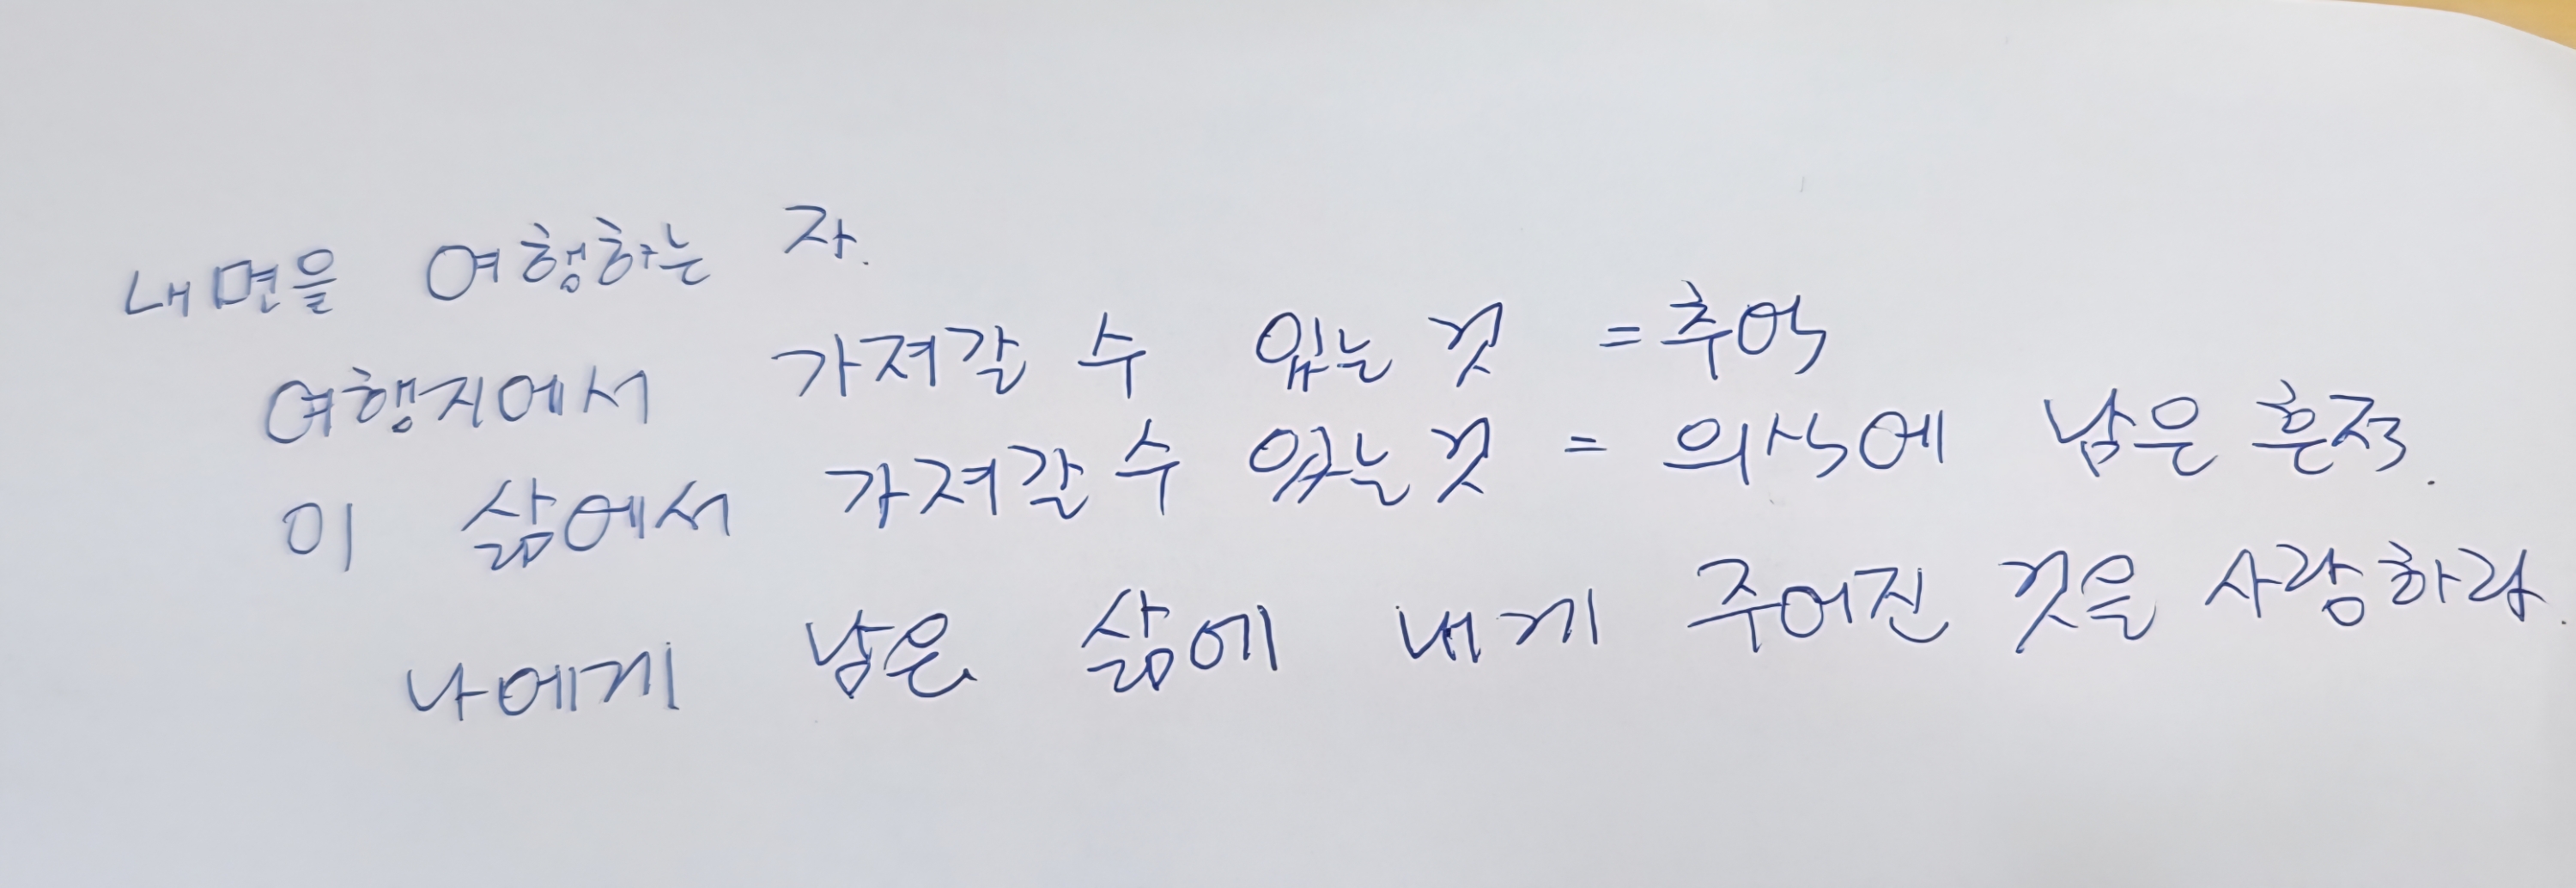 내면을 여행하는 자.
여행지에서 가져갈 수 있는 것 = 추억
이 삶에서 가져갈 수 있는 것 = 의식에 남은 흔적.
나에게 남은 삶에 내게 주어진 것을 사랑하라.